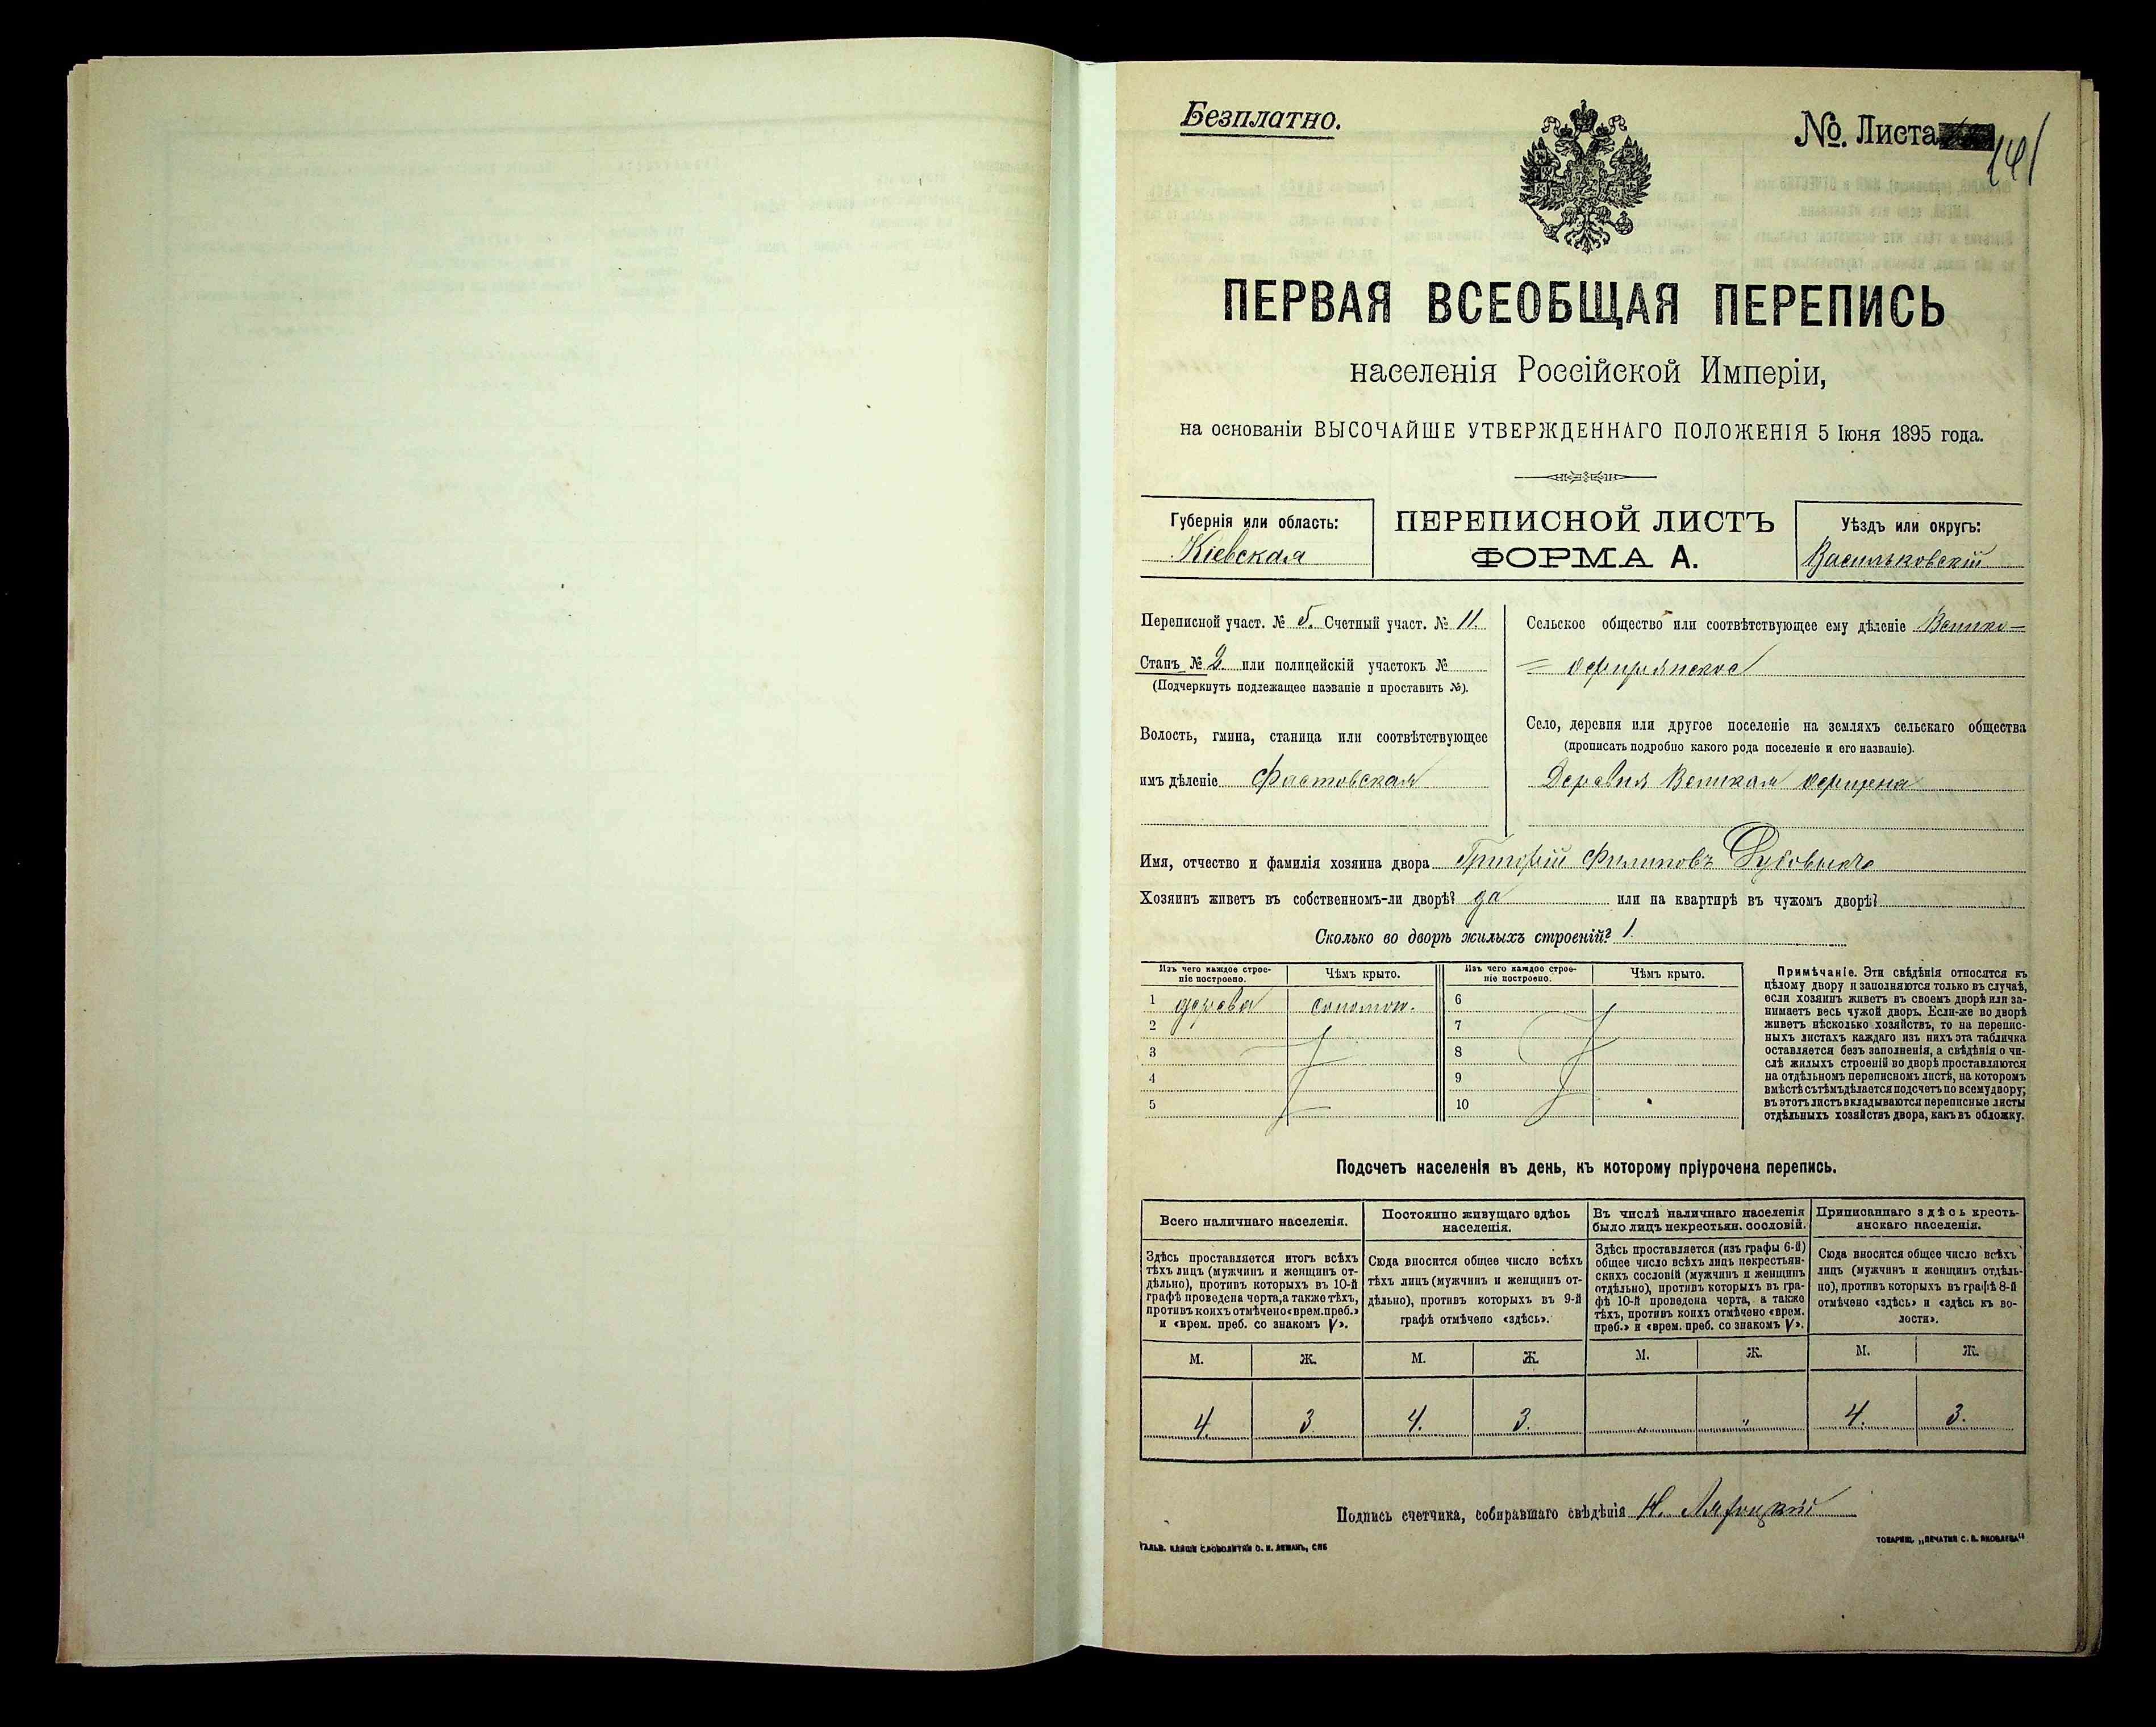 Безплатно.
№. Листа 141
ПЕРВАЯ ВСЕОБЩАЯ ПЕРЕПИСЬ
населенія Россійской Имперіи,
на основаніи ВЫСОЧАЙШЕ УТВЕРЖДЕННАГО ПОЛОЖЕНІЯ 5 Іюня 1895 года.
Губернія или область:
Кіевская
ПЕРЕПИСНОЙ ЛИСТЪ
ФОРМА А.
Уѣздъ или округъ:
Васильковскій
Переписной участ. № 5. Счетный участ. № 11.
Станъ № 2 или полицейскій участокъ №
(Подчеркнуть подлежащее названіе и проставить №).
Волость, гмина, станица или соотвѣтствующее
имъ дѣленіе Фастовская
Сельское общество или соотвѣтствующее ему дѣленіе Велико-
=офирянское
Село, деревня или другое поселеніе на земляхъ сельскаго общества
(прописать подробно какого рода поселеніе и его названіе).
Деревня Великая
Имя, отчество и фамилія хозяина двора Григорій Филиповъ
Хозяинъ живетъ въ собственномъ-ли дворѣ? да или на квартирѣ въ чужомъ дворѣ?
Сколько во дворѣ жилыхъ строеній? 1.
Изъ чего каждое строе-
ніе построено.
Чѣмъ крыто.
Изъ чего каждое строе-
ніе построено.
Чѣмъ крыто.
1 дерева соломою. 6
2 7
3 8
4 9
5 10
Примѣчаніе. Эти свѣдѣнія относятся къ
цѣлому двору и заполняются только въ случаѣ,
если хозяинъ живетъ въ своемъ дворѣ или за-
нимаетъ весь чужой дворъ. Если-же во дворѣ
живетъ нѣсколько хозяйствъ, то на перепис-
ныхъ листахъ каждаго изъ нихъ эта табличка
оставляется безъ заполненія, а свѣдѣнія о чи-
слѣ жилыхъ строеній во дворѣ проставляются
на отдѣльномъ переписномъ листѣ, на которомъ
вмѣстѣ съ тѣмъ дѣлается подсчетъ по всему двору;
въ этотъ листъ вкладываются переписные листы
отдѣльныхъ хозяйствъ двора, какъ въ обложку.
Подсчетъ населенія въ день, къ которому пріурочена перепись.
Всего наличнаго населенія.
Здѣсь проставляется итогъ всѣхъ
тѣхъ лицъ (мужчинъ и женщинъ от-
дѣльно), противъ которыхъ въ 10-й
графѣ проведена черта, а также тѣхъ,
противъ коихъ отмѣчено «врем. преб.»
и «врем. преб. со знакомъ V».
Постоянно живущаго здѣсь
населенія.
Сюда вносится общее число всѣхъ
тѣхъ лицъ (мужчинъ и женщинъ от-
дѣльно), противъ которыхъ въ 9-й
графѣ отмѣчено «здѣсь».
Въ числѣ наличнаго населенія
было лицъ некрестьян. сословій.
Здѣсь проставляется (изъ графы 6-й)
общее число всѣхъ лицъ некрестьян-
скихъ сословій (мужчинъ и женщинъ
отдѣльно), противъ которыхъ въ гра-
фѣ 10-й проведена черта, а также
тѣхъ, противъ коихъ отмѣчено «врем.
преб.» и «врем. преб. со знакомъ V».
Приписаннаго здѣсь кресть-
янскаго населенія.
Сюда вносится общее число всѣхъ
лицъ (мужчинъ и женщинъ отдѣль-
но), противъ которыхъ въ графѣ 8-й
отмѣчено «здѣсь» и «здѣсь къ во-
лости».
М. Ж. М. Ж. М. Ж. М. Ж.
4. 3 4. 3. " " 4. 3.
Подпись счетчика, собиравшаго свѣдѣнія Н.
ГАЛЬВ. КЛИШЕ СЛОВОЛИТНИ О. И. ЛЕМАНЪ, СПБ
ТОВАРИЩ. „ПЕЧАТНЯ С. П. ЯКОВЛЕВА"